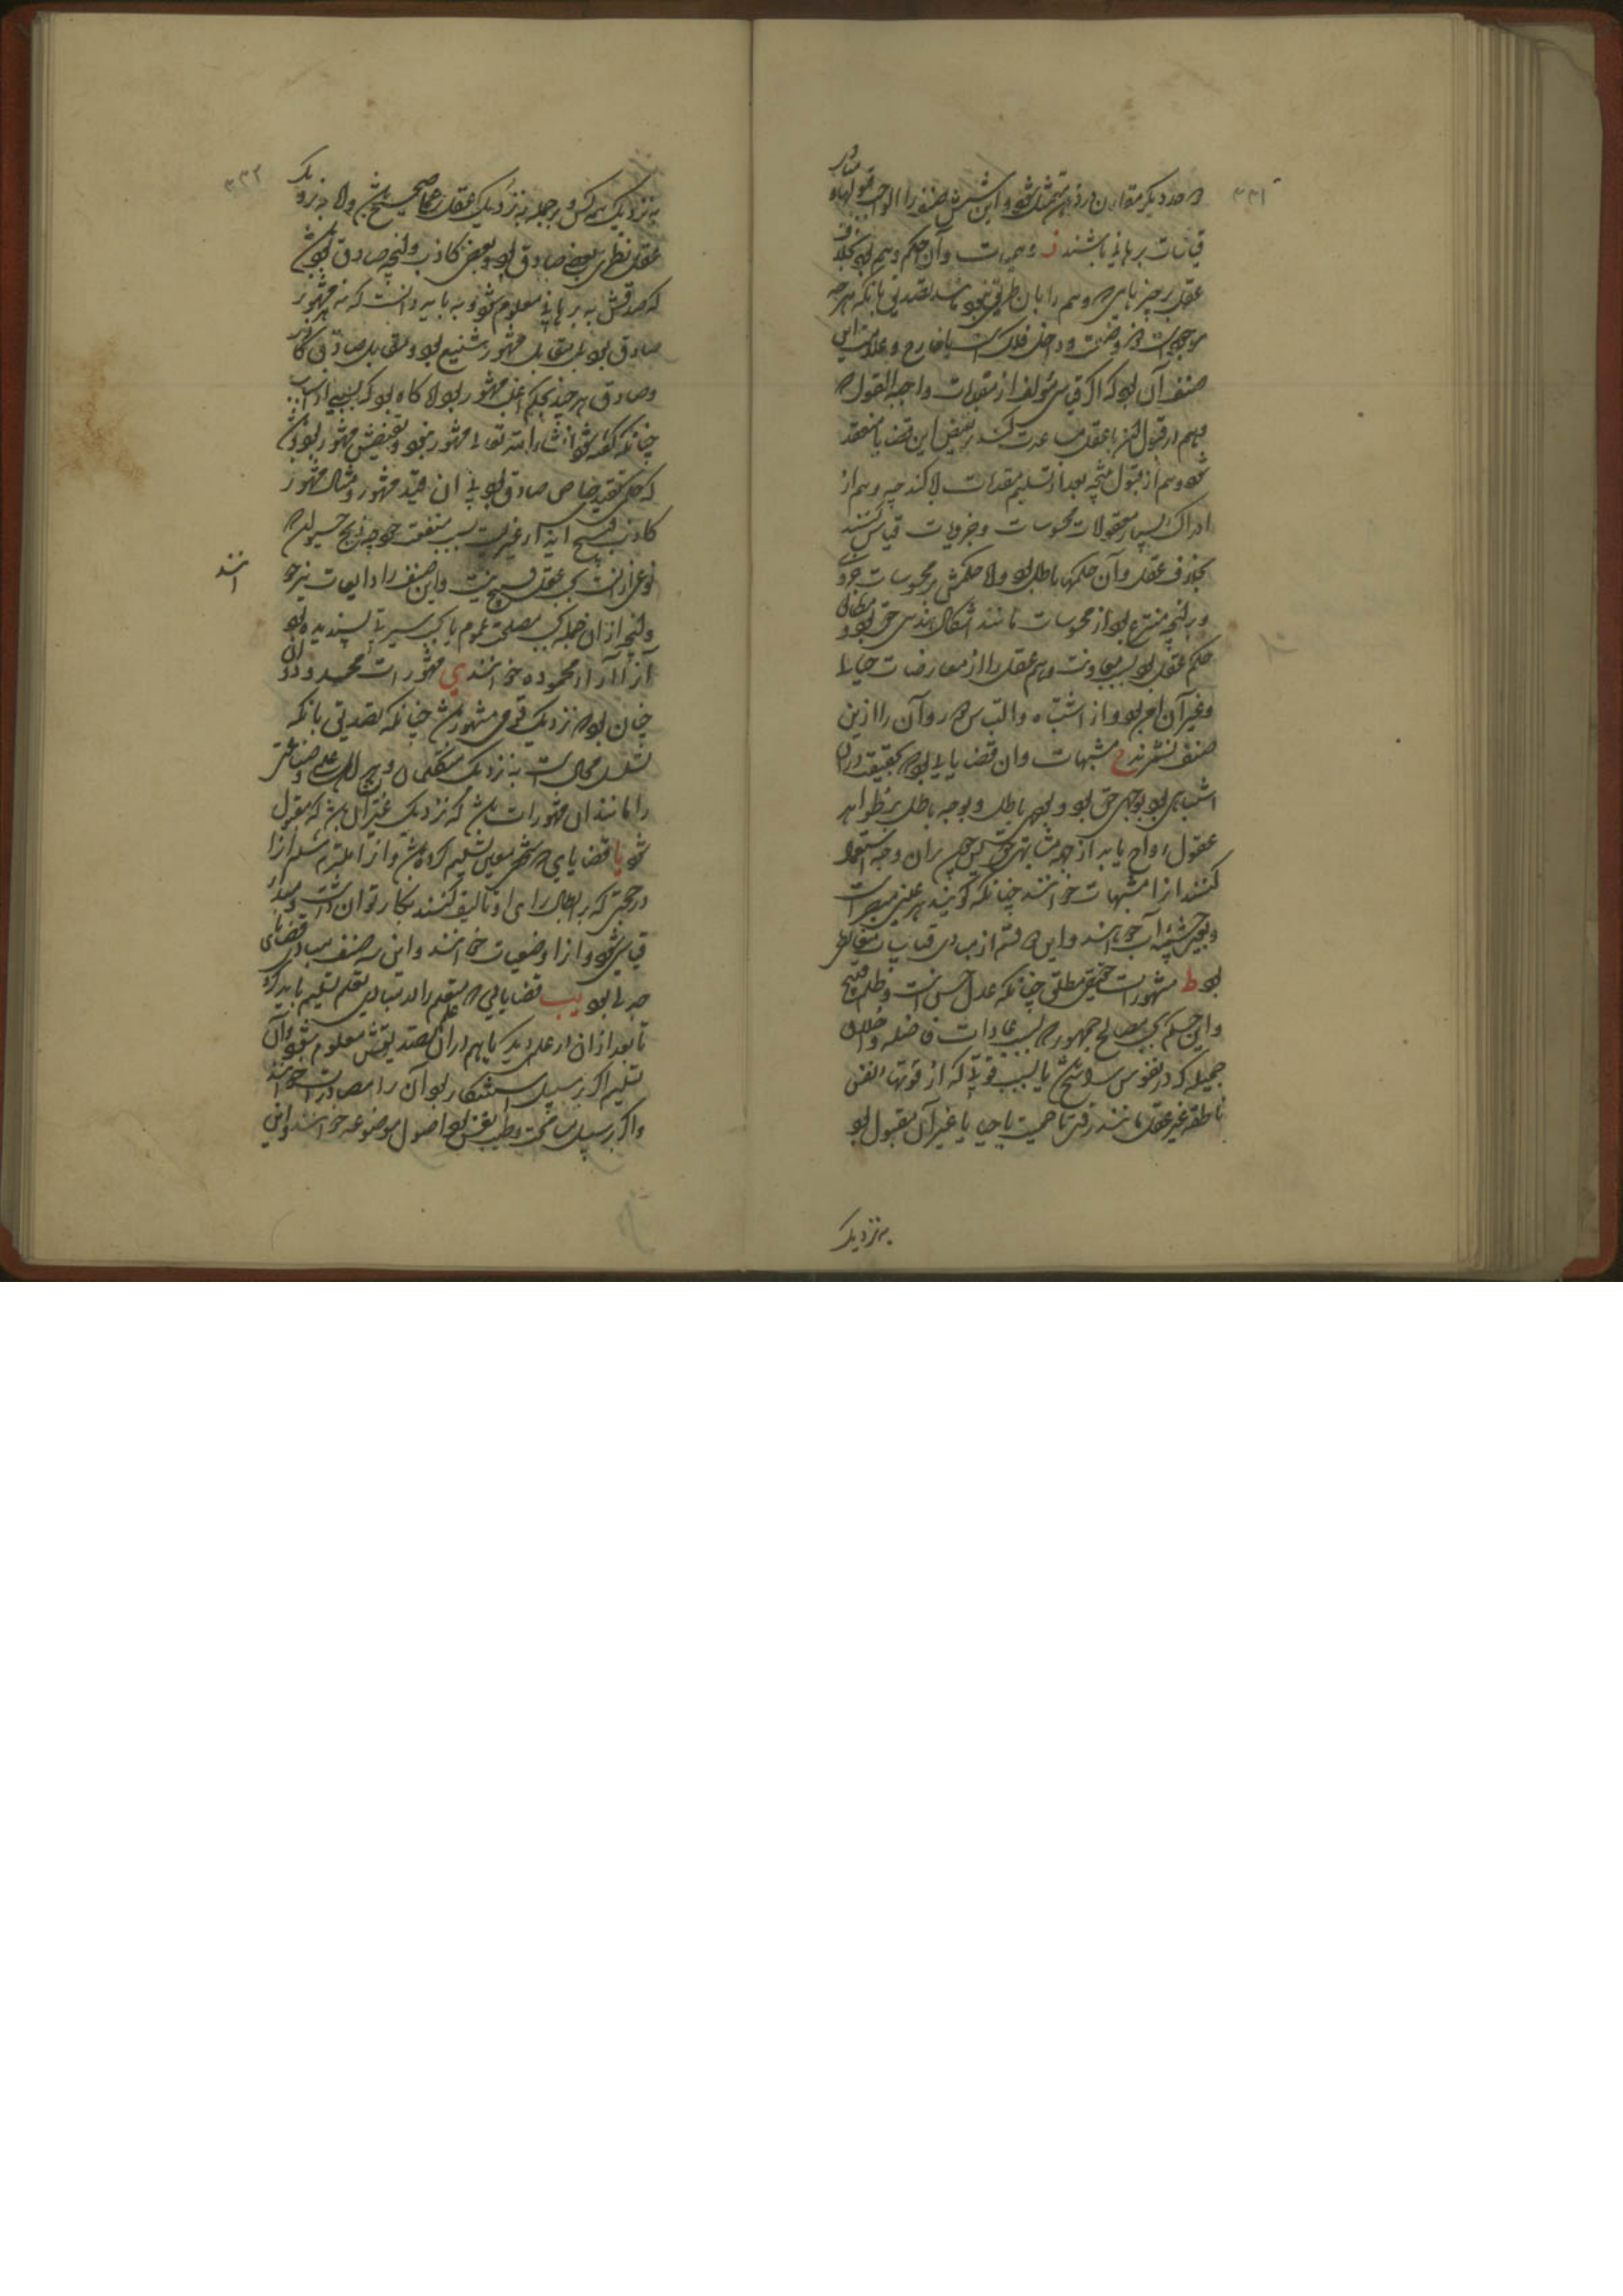 ۳۳۱
و حد دیگر مقارن در ذهن متمثل شود و این شش صنف را الواجب قبولها و مبادی
قیاسات برهانی باشند ز وهمیات و آن حکم وهم بود بخلاف
عقل بر چیزهایی که وهم را بآن طریق نبود مانند تصدیق بآنکه هر چه
موجود است در وضعست و داخل فلک است یا خارج و علامت این
صنف آن بود که اگر قیاسی مؤلف از مقدمات واجبة القبول که
وهم در قبول آن با عقل مساعدت کند بر نقیض این قضایا منعقد
شود وهم از قبول نتیجه بعد از تسلیم مقدمات ابا کند چه وهم از
ادراک بسیار معقولات محسوسات و جزویات قیاس کند
بخلاف عقل و آن حکمها باطل بود و اما حکمش در محسوسات خود
و در آنچه منتزع بود از محسوسات مانند اشکال هندسی حق بود و مطابق
حکم عقل بود بسبب معاونت وهم عقل را از معارضات خیالی
و غیر آن ایمن بود و از اشتباه و التباس دور و آن را ازین
صنف نشمرند ح مشبهات و آن قضایایی بود که بحقیقت در آن
اشتباهی بود بوجهی حق بود و بوجهی باطل و بوجه باطل بر ظواهر
عقول رواج یابد از جهة مشابهتی بحق پس چون بر آن وجه استعمال
کنند آنرا مشبهات خوانند چنانکه گویند هر عینی مبصر است
و بعین چشمه آب خواهند و این قسم از مبادی قیاسات مغالطی
بود ط مشهورات حقیقی مطلق چنانکه عدل حسن است و ظلم قبیح
و این حکم بحسب مصالح جمهور یا بسبب عادات فاضله و اخلاق
جمیله که در نفوس راسخ یا بسبب قوتی که از قوتهای نفس
ناطقه غیر عقلی مانند رقت یا حمیت یا حیا یا غیر آن مقبول بود
به نزدیک
۳۳۲
به نزدیک همه کس و بر جمله به نزدیک عقل عملی صحیح باشد و اما به نزدیک
عقل نظری بعضی صادق بود و بعضی کاذب و آنچه صادق بود باشد
که صدقش به برهانی معلوم شود و بباید دانست که نه هر مشهور
صادق بود بل مقابل مشهور شنیع بود و مقابل صادق کاذب
و صادق هر چند بحکم اغلب مشهور بود اما گاه بود که بسببی از اسباب
چنانکه گفته شود انشاء الله تعالی مشهور نبود و نقیضش مشهور بود و باشد
که حکمی بتقیید خاص صادق بود و بی آن قید مشهور و مثال مشهور
کاذب قبح ایذای غیر است بسبب منفعت خود چه ذبح حیوان
نوعی از آنست بحسب عقل قبیح نیست و این صنف را ذایعات نیز خوانند
و آنچه از آن جمله بحسب مصلحت عموم یا بحسب سیرتی پسندیده بود
آنرا آراء محموده خوانند ی مشهورات محدود و آن
چنان بود که نزدیک قومی مشهور باشد چنانکه تصدیق بآنکه
تسلسل محالست به نزدیک متکلمان و هر اهل علمی و صناعتی
را مانند آن مشهورات باشد که نزدیک غیر ایشان باشد که مقبول
شود یا قضایایی که شخص معین تسلیم کرده باشد و آنرا ملتزم شده آنرا
در حجتی که بر ابطال رای او تألیف کنند بکار توان داشت و مبدا
قیاسی شود و آنرا وضعیات خوانند و این سه صنف مبادی قضایای
جدلی بود یب قضایایی که متعلم را در مبادی تعلم تسلیم باید کرد
تا بعد از آن در علمی دیگر یا هم در آن علم تصدیقش معلوم شود و آن
تسلیم اگر بر سبیل استنکار بود آن را مصادرات خوانند
و اگر بر سبیل مسامحت و طیب نفس بود اصول موضوعه خوانند و این